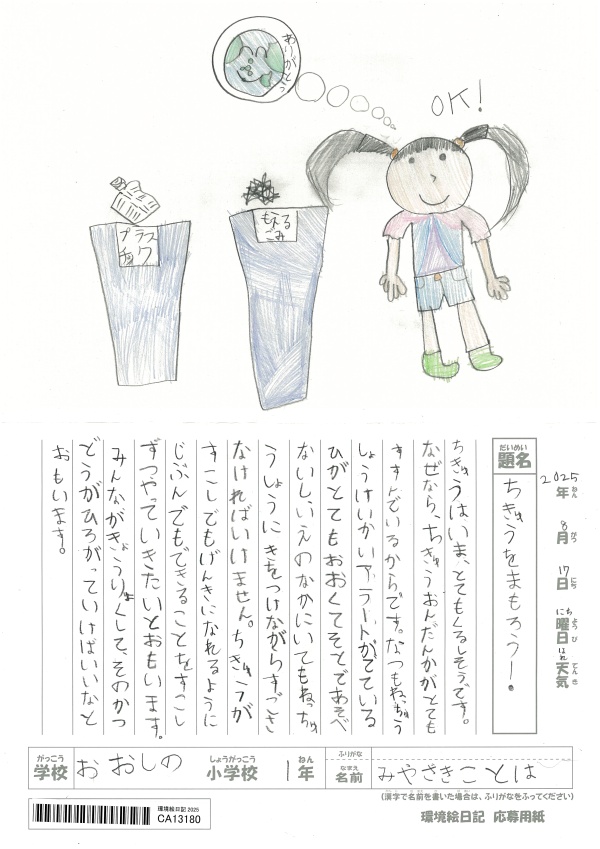 ありがとう
OK!
プラスチック
もえるごみ
2025年ねん
8月がつ
17日にち
にちようび曜日
はれ天気てんき
だいめい
題名
ちきゅうをまもろう！
ちきゅうはいま、とてもくるしそうです。
なぜなら、ちきゅうおんだんかがとても
すすんでいるからです。なつもねっちゅう
しょうけいかいアラートがでている
ひがとてもおおくてそとであそべ
ないし、いえのなかにいてもねっちゅ
うしょうにきをつけながらすごさ
なければいけません。ちきゅうが
すこしでもげんきになれるように
じぶんでもできることをすこし
ずつやっていきたいとおもいます。
みんながきょうりょくして、そのかつ
どうがひろがっていけばいいなと
おもいます。
がっこう
学校
おおしの
しょうがっこう
小学校
1年
ねん
ふりがな
なまえ
名前
みやざきことは
(漢字で名前を書いた場合は、ふりがなをふってください)
環境絵日記 2025
CA13180
環境絵日記 応募用紙